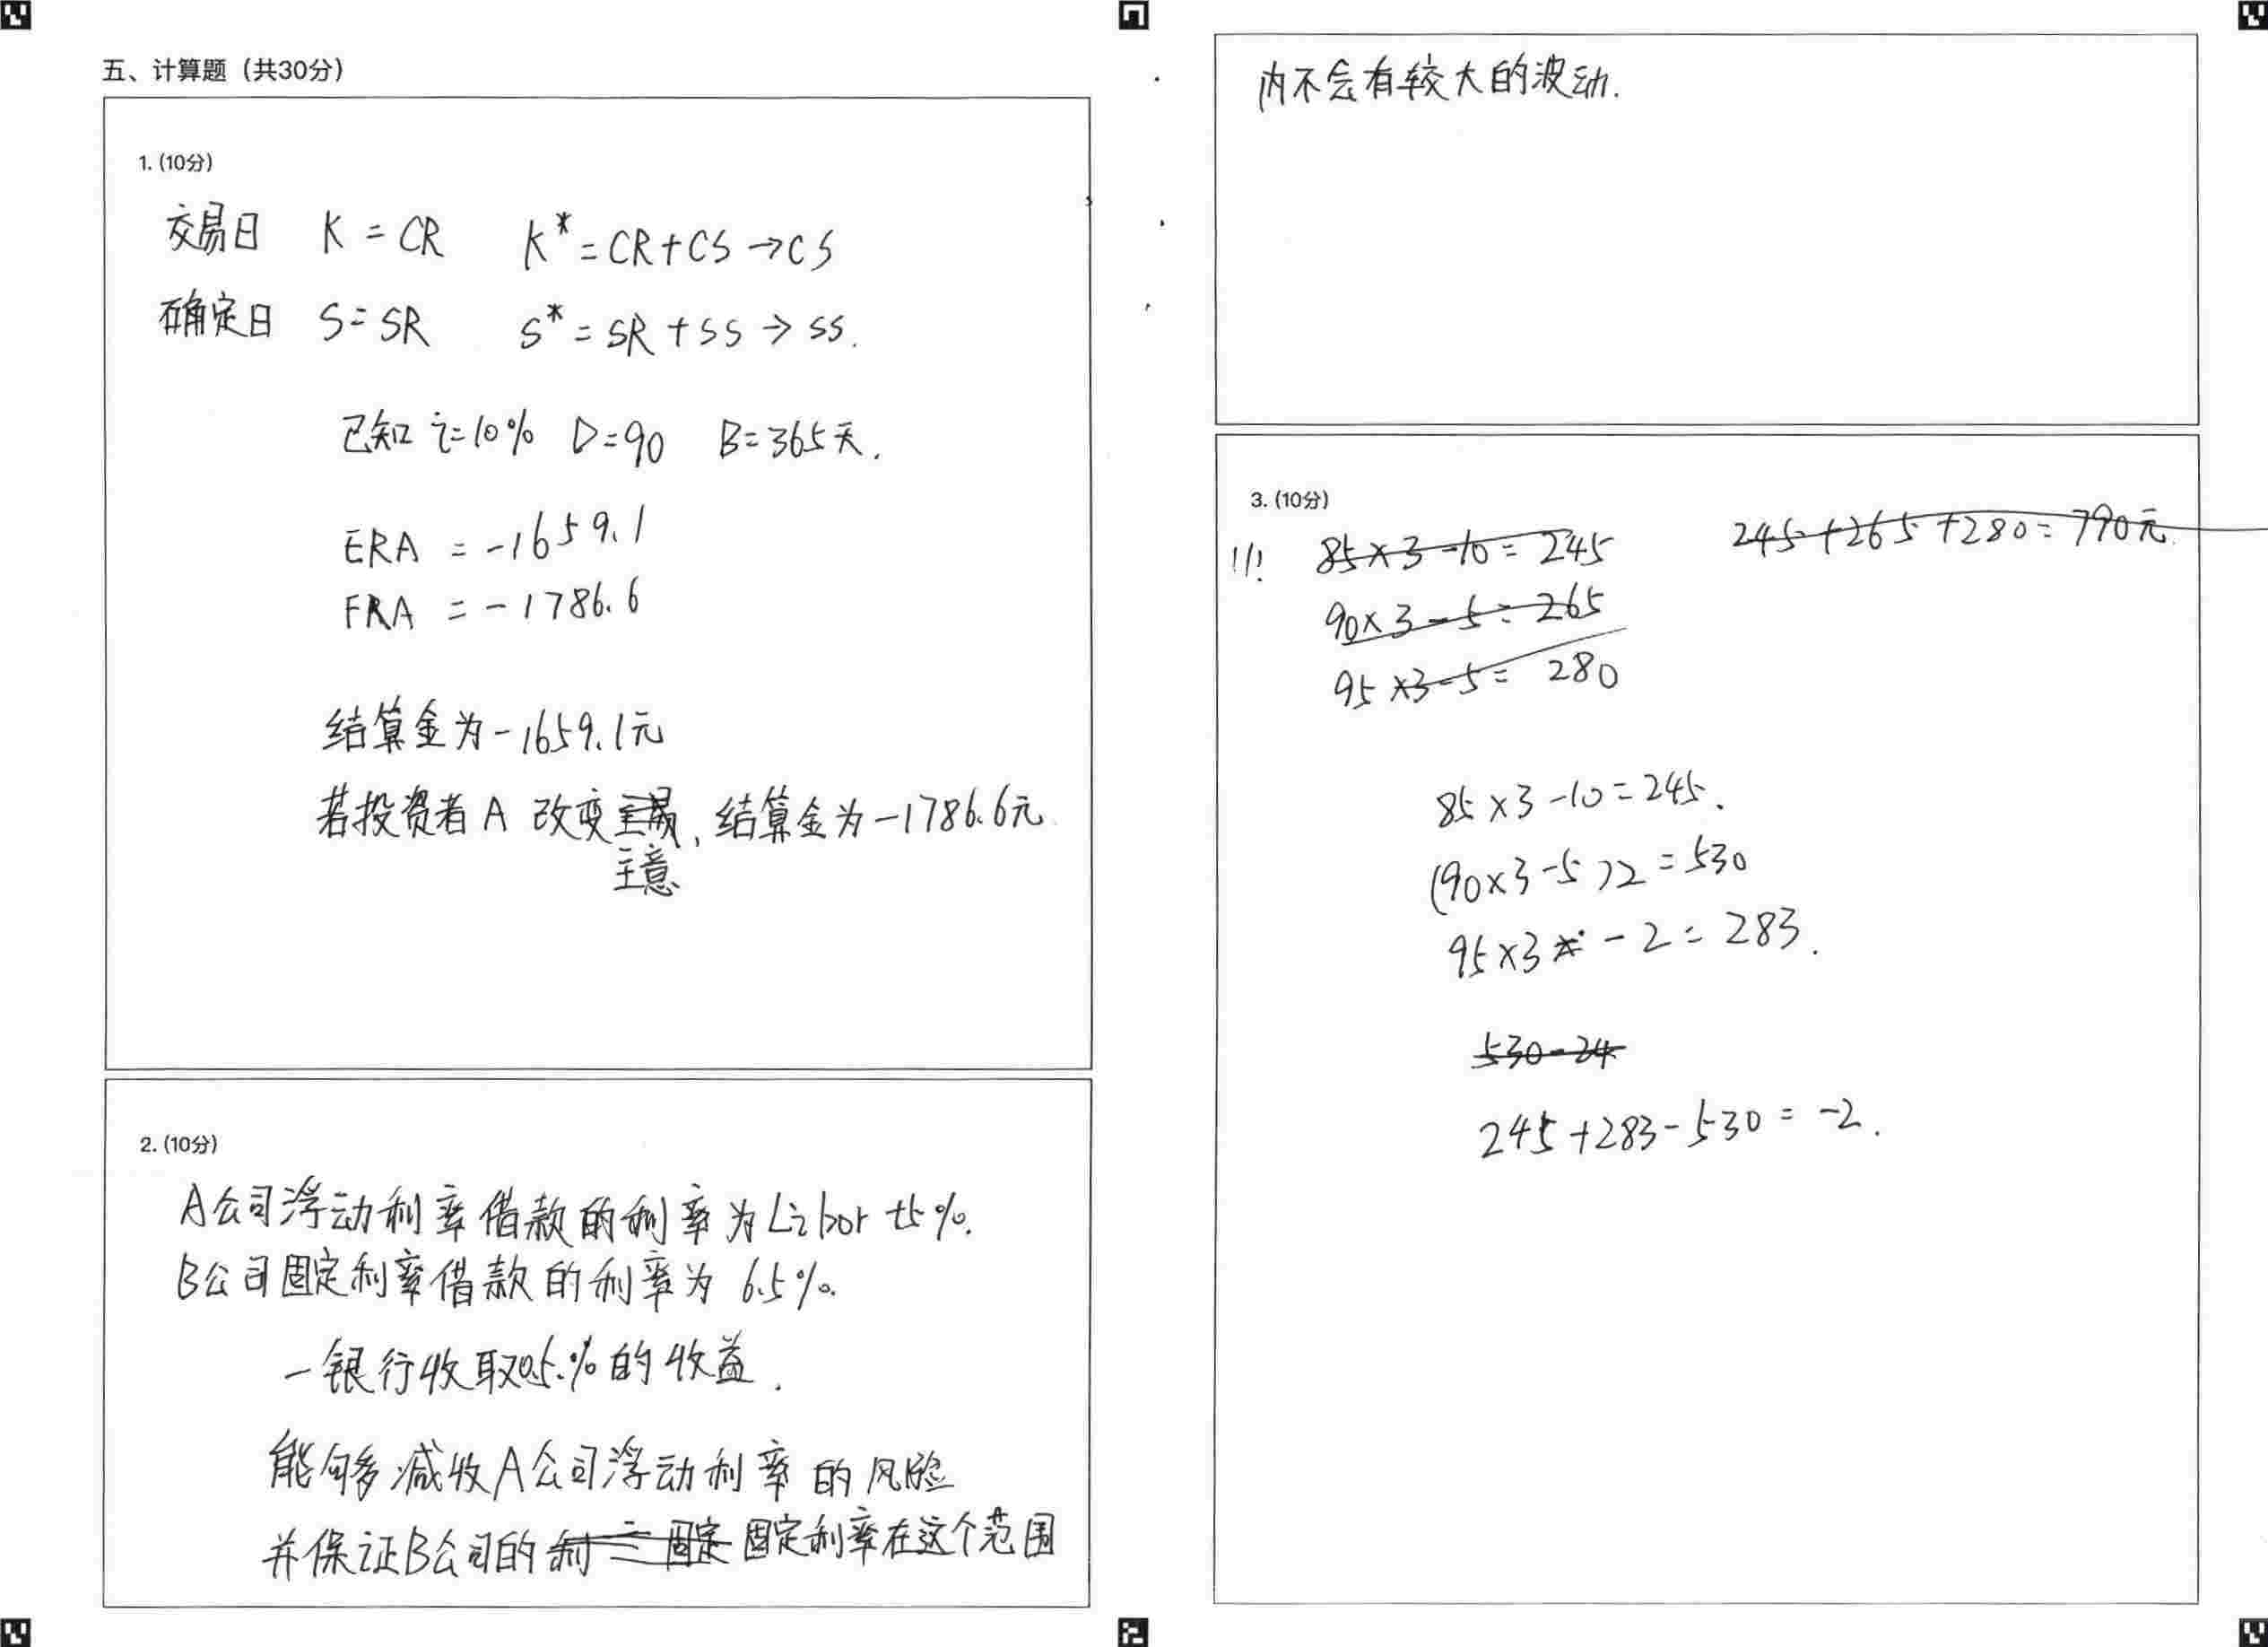 五、计算题（共30分）
1. (10分)
交易日 K = CR K* = CR+CS → CS
确定日 S = SR S* = SR + SS → SS.
已知 i=10% D=90 B=365天.
ERA = -1659.1
FRA = -1786.6
结算金为-1659.1元
若投资者A 改变主易, 结算金为-1786.6元
主意
2. (10分)
A公司浮动利率借款的利率为Libor+5%.
B公司固定利率借款的利率为 6.5%.
一银行收取0.5%的收益.
能够减收A公司浮动利率的风险
并保证B公司的利 固定 固定利率在这个范围
内不会有较大的波动.
3. (10分)
85×3-10=245 245+265+280=790元.
90×3-5=265
95×3-5=280
85×3-10=245.
(90×3-5)2=530
95×3-2=283.
530-24
245+283-530=-2.